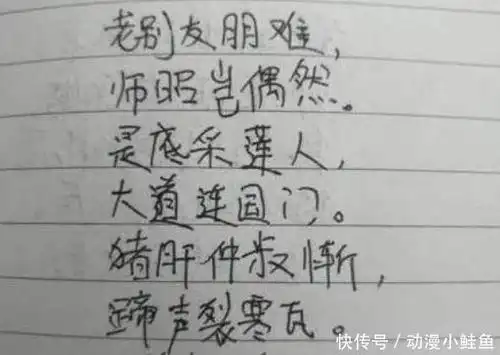 老别友朋难，
师昭岂偶然。
是底采莲人，
大道连国门。
猪肝仲叔惭，
蹄声裂寒瓦。
快传号／动漫小鲑鱼